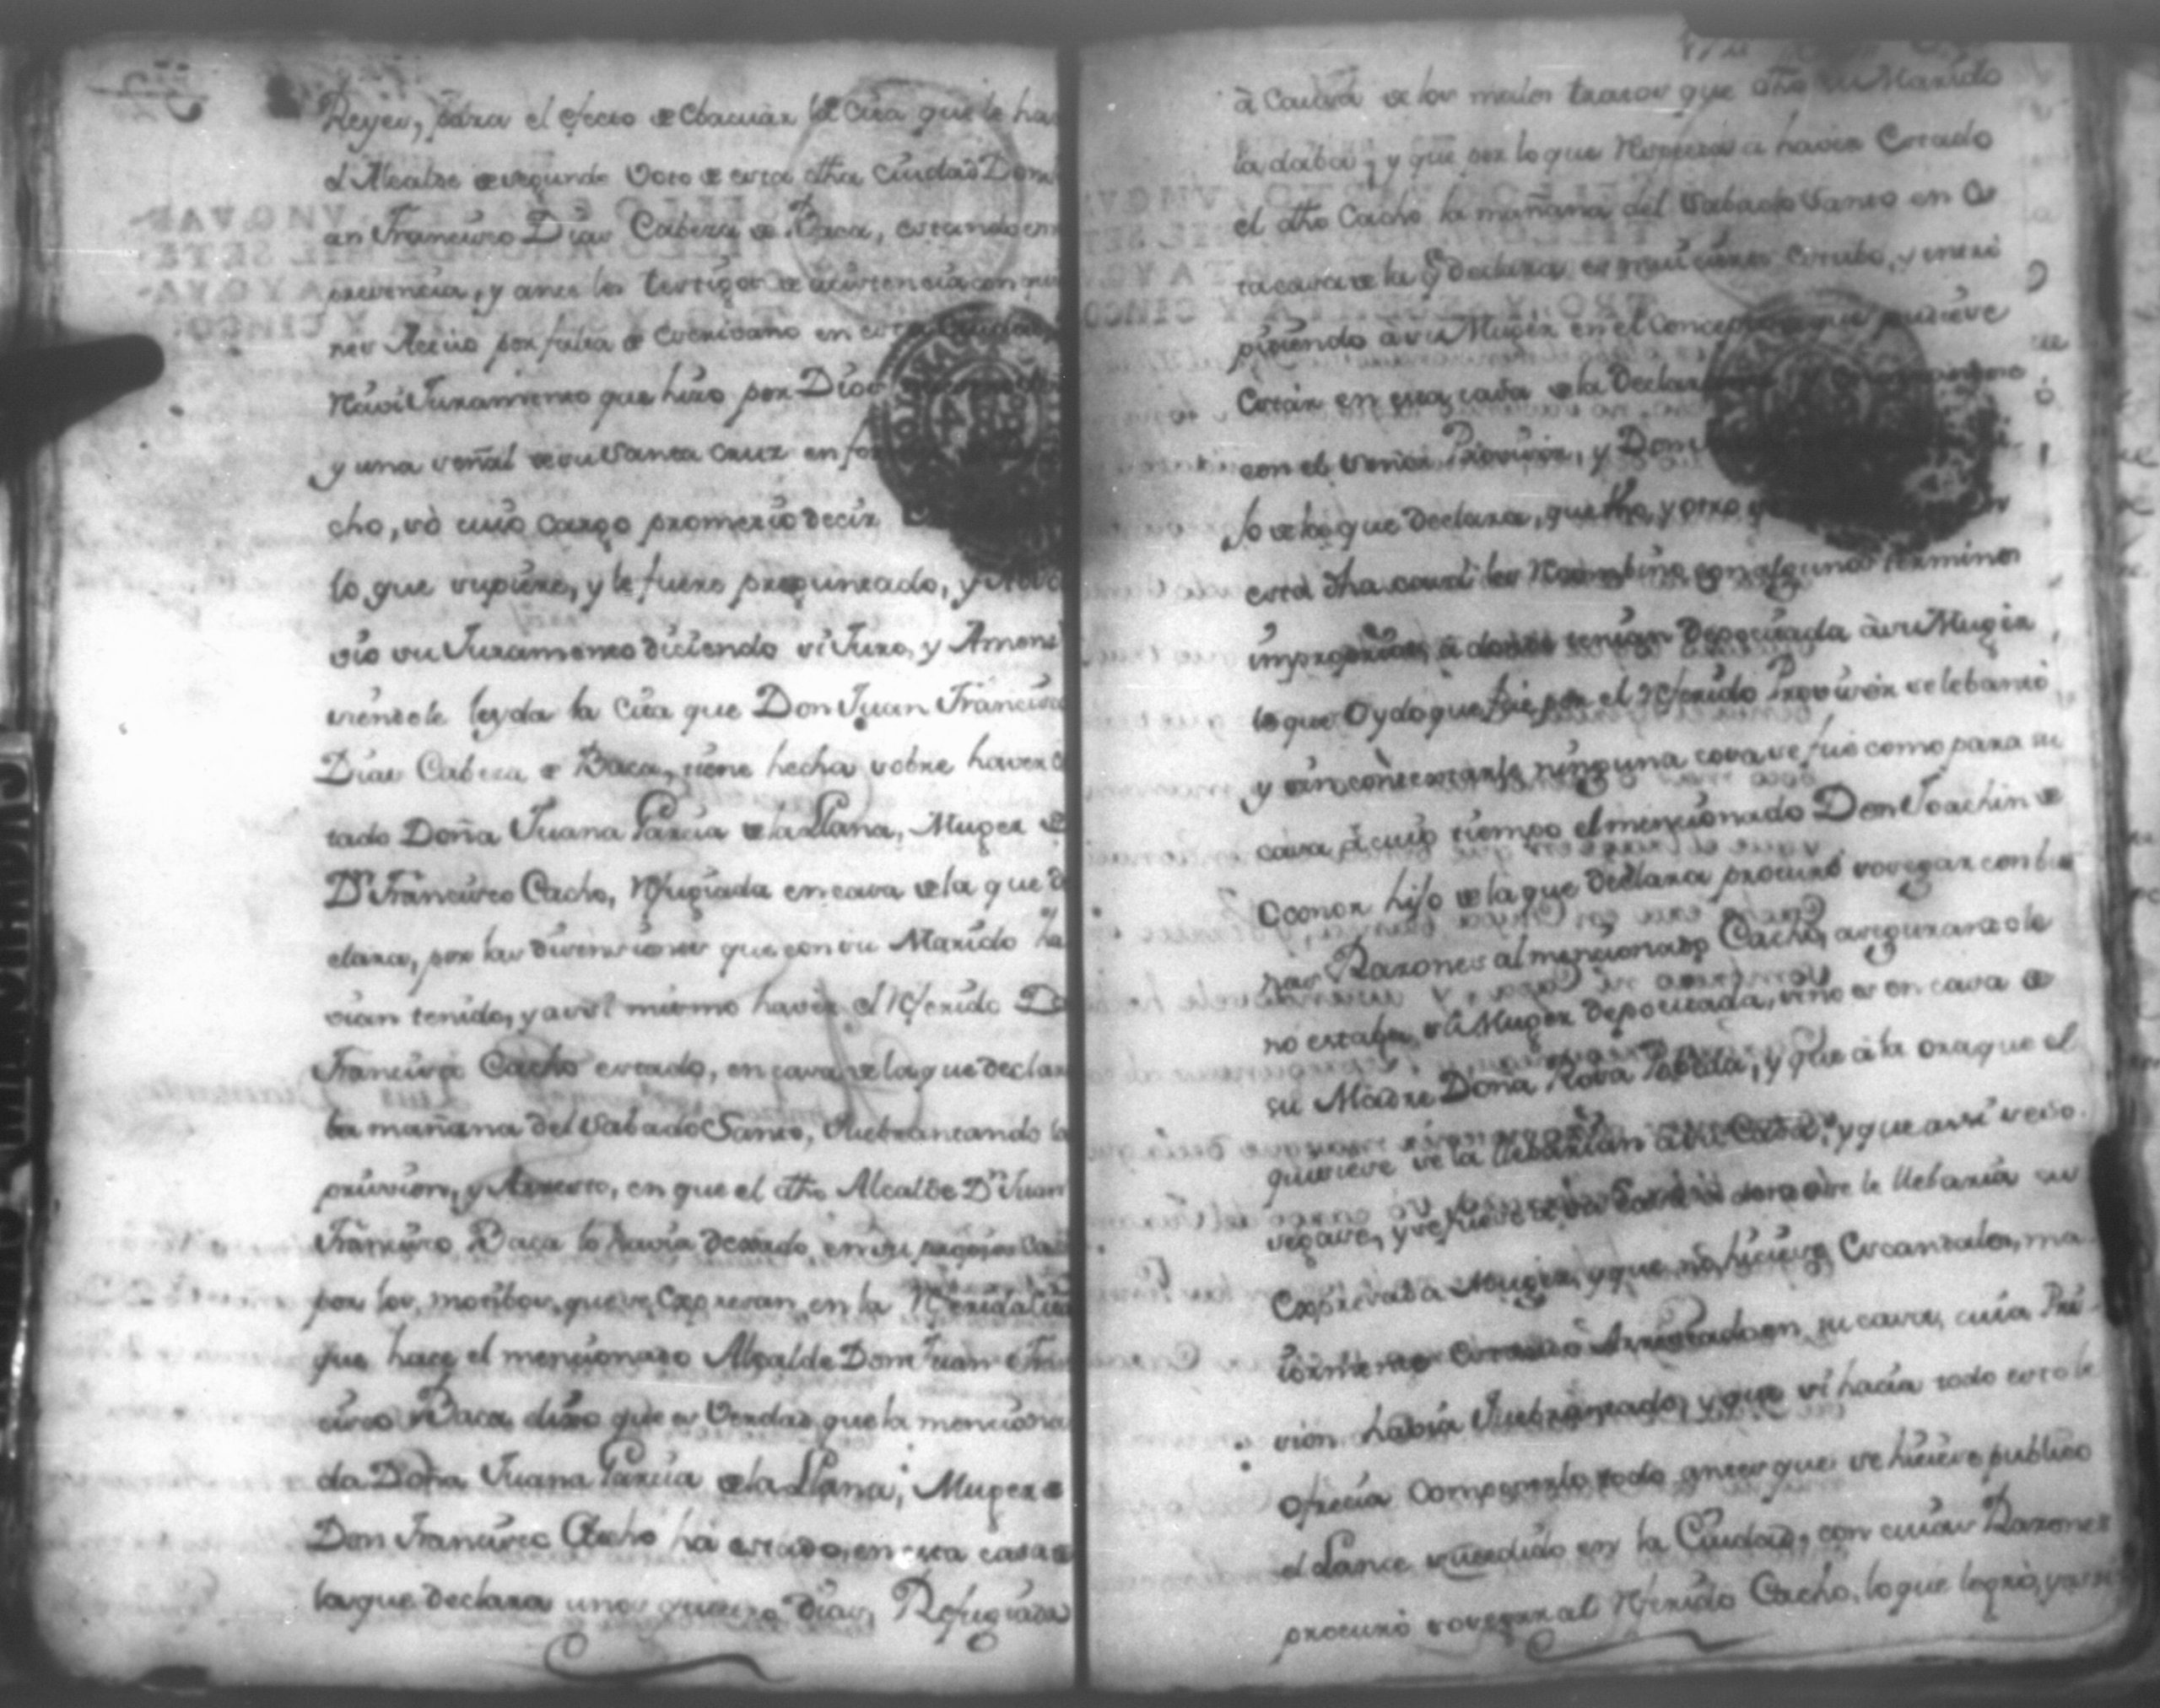 Reyes, para el efecto de Evacuar la Cita que le ha
el Alcalde de segundo Voto de esta dha Ciudad Don
an Francisco Dias Cabeza de Baca, estando en
presencia, y ante los testigos de asistencia con
nes Actuo por falta de Escrivano en esta Ciudad
Recivi Juramento que hizo por Dios
y una señal de su Santa Cruz en for
cho, só cuio cargo prometio decir
lo que supiere, y le fuere preguntado, y
vio su Juramento diciendo si Juro, y Amen
viendole leyda la Cita que Don Juan Francisco
Dias Cabeza de Baca, tiene hecha sobre haver
tado Doña Juana Garcia de la Llana, Muger de
Dn Francisco Cacho, Refugiada en casa de la que d
clara, por las disenciones que con su Marido ha
vian tenido, y asi mismo haver el Referido Dn
Francisco Cacho estado, en casa de la que declara
la mañana del Sabado Santo, Quebrantando la
pricion, y Arresto, en que el dho Alcalde Dn Juan
Francisco Baca lo havia dexado, en su propia Casa
por los motibos, que se Expresan en la Referida Cita
que hace el mencionado Alcalde Don Juan Fran
cisco de Baca, dixo que es Verdad que la menciona
da Doña Juana Garcia de la Llana, Muger de
Don Francisco Cacho há estado, en esta casa de
la que declara unos quatro Dias, Refugiada
à Causa de los malos tratos que dho su Marido
la daba, y que por lo que Respecta a haver Estado
el dho Cacho la mañana del Sabado Santo en Ca
sa de la q declara es cierto Estubo, y entró
pidiendo à su Muger en el Concepto que pudiese
Estár en esta casa de la Declar
con el Señor Provisor, y Don
jo de la que declara, que dho, y otro
esta dha casa los Recombino con algunos terminos
improprios, à donde tenian Depocitada à su Muger
lo que Oydo que fue por el Referido Provisor se lebantó
y sin contestarle ninguna cosa se fue como para su
casa, á cuio tiempo el mencionado Don Joachin de
Oconor hijo de la que declara procuró sosegar con bue
nas Razones al mencionado Cacho, asegurandole
no estaba, su Muger depocitada, sino es en casa de
su Madre Doña Rosa Pobeda, y que á la ora que el
quisiese se la llebarian à su Casa, y que assi se so
segase, y se fuese à su casa à donde le llebaria su
Expresada Muger, y que no hiciese Escandalos, ma
iormente Estando Arrestado en su casa, cuia Pri
sion habia Quebrantado, y que si hacia todo esto le
ofrecia Componerlo todo antes que se hiciese publico
el Lance susedido en la Ciudad, con cuias Razones
procuró sosegar al Referido Cacho, lo que logró, y assi